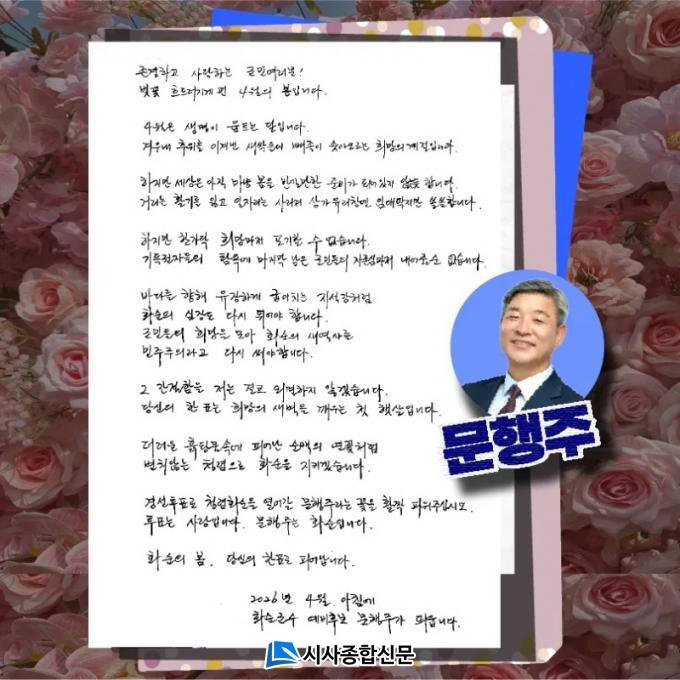 존경하고 사랑하는 군민여러분!
벚꽃 흐드러지게 핀 4월의 봄입니다.
4월은 생명이 움트는 달입니다.
겨우내 추위를 이겨낸 새싹들이 솟아오르는 희망의 계절입니다.
하지만 세상은 아직 봄을 준비가 되어있지 않은듯 합니다.
거리는 활기를 잃고 일자리는 사라져 상가 임대딱지만 쓸쓸합니다.
하지만 한가닥 희망마저 포기할 수 없습니다.
기득권자들의 탐욕에 마지막 남은 군민들의 자존심마저 내어줄순 없습니다.
바다를 향해 유장하게 굽이치는 지석강처럼
화순의 심장은 다시 뛰어야 합니다.
군민들의 희망을 모아 화순의 새역사를
민주주의라고 다시 써야합니다.
그 간절함을 저는 결코 외면하지 않겠습니다.
당신의 한 표는 희망의 새벽을 깨우는 첫 햇살입니다.
더러운 흙탕물속에 피어난 순백의 연꽃처럼
변치않는 청렴으로 화순을 지키겠습니다.
경선투표로 청렴화순을 열어갈 문행주라는 꽃을 활짝 피워주십시오.
투표는 사랑입니다. 문행주는 화순입니다.
화순의 봄, 당신의 한표로 피어납니다.
2026년 4월 아침에
화순군수 예비후보 문행주가 띄웁니다.
문행주
시사종합신문